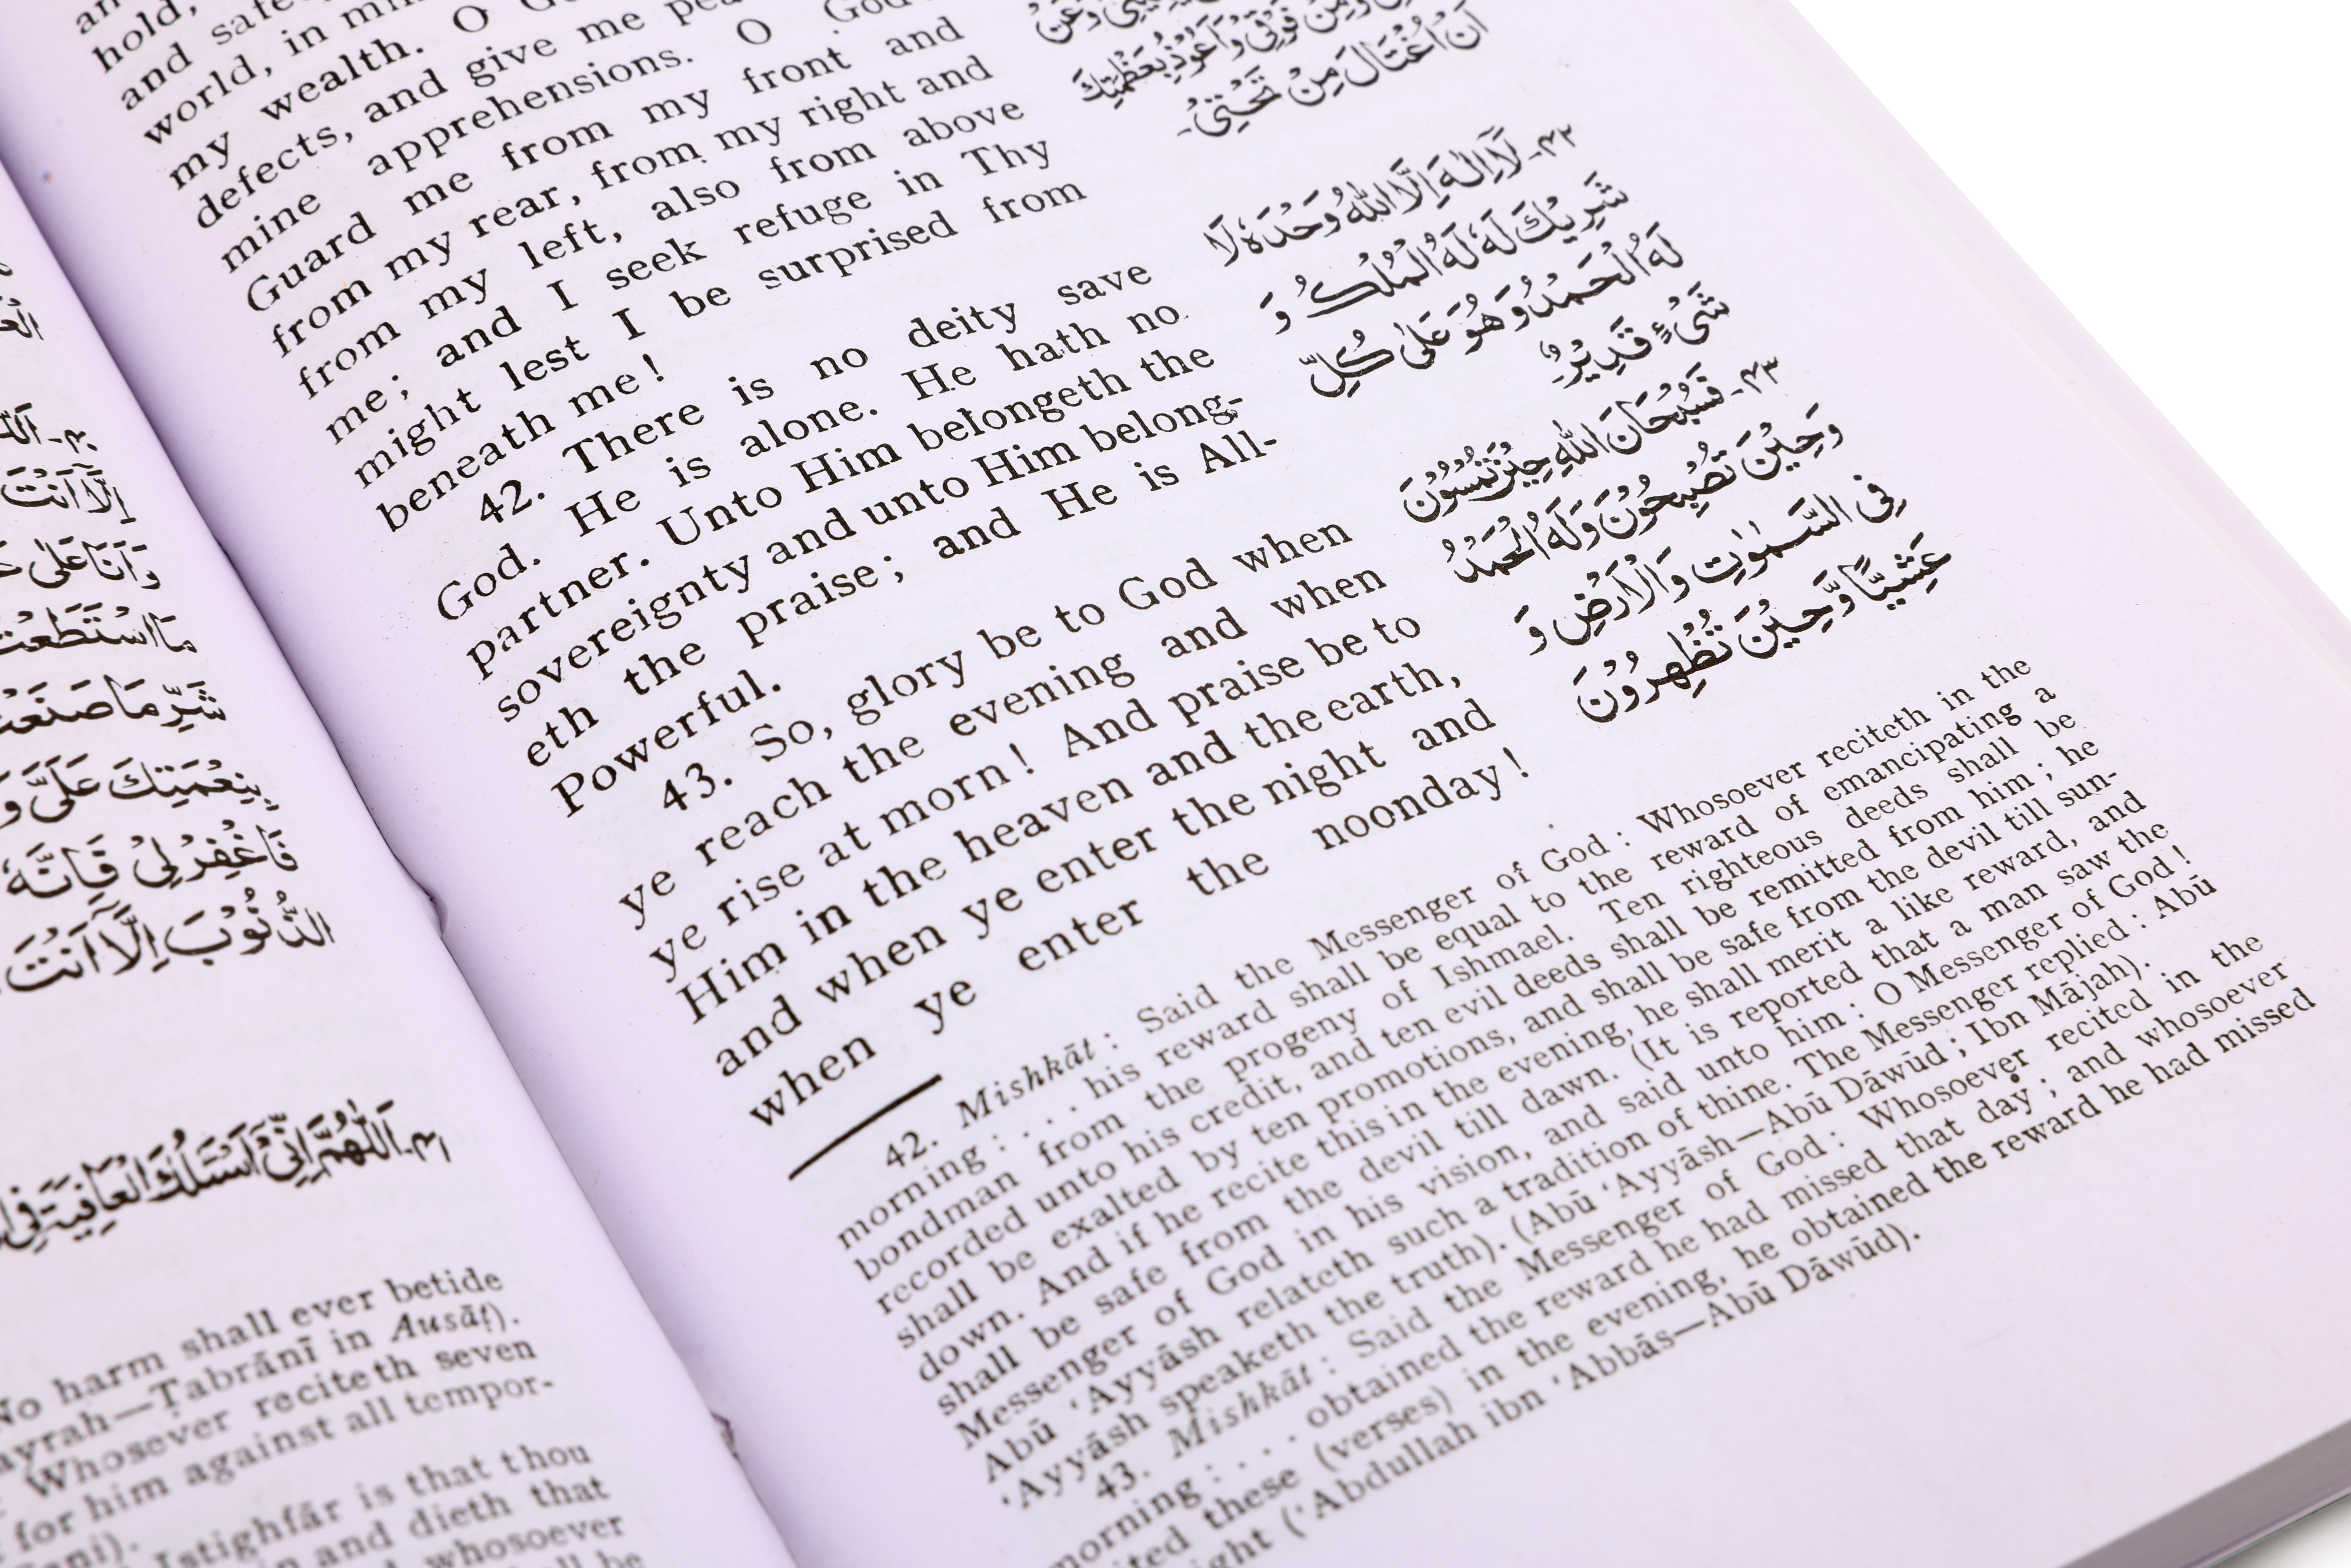 الع
۴۰-آللّٰ
اِلَّا اَنْتَ
وَاَنَا عَلٰى
مَا اسْتَطَعْتُ
شَرِّ مَا صَنَعْتُ
بِنِعْمَتِكَ عَلَىَّ وَ
فَاغْفِرْلِىْ فَاِنَّهٗ
الذُّنُوْبَ اِلَّا اَنْتَ
۴۱-اَللّٰهُمَّ اِنِّىْ اَسْئَلُكَ الْعَافِيَةَ فِى
No harm shall ever betide
ayrah—Ṭabrānī in Ausāṭ).
Whosever reciteth seven
for him against all tempor-
ani).
Istighfār is that thou
in and dieth that
whosoever
all be
an
hold,
and safe
world, in min
my wealth. O Go
defects, and give me pea
mine apprehensions. O God
Guard me from my front and
from my rear, from my right and
from my left, also from above
me; and I seek refuge in Thy
might lest I be surprised from
beneath me!
42. There is no deity save
God. He is alone. He hath no
partner. Unto Him belongeth the
sovereignty and unto Him belong-
eth the praise; and He is All-
Powerful.
43. So, glory be to God when
ye reach the evening and when
ye rise at morn! And praise be to
Him in the heaven and the earth,
and when ye enter the night and
when ye enter the noonday!
وَمِنْ فَوْقِىْ وَاَعُوْذُ بِعَظْمَتِكَ
اَنْ اُغْتَالَ مِنْ تَحْتِىْ-
۴۲-لَآ اِلٰهَ اِلَّا اللّٰهُ وَحْدَهٗ لَا
شَرِيْكَ لَهٗ لَهُ الْمُلْكُ وَ
لَهُ الْحَمْدُ وَهُوَ عَلٰى كُلِّ
شَىْءٍ قَدِيْرٌ
۴۳-فَسُبْحَانَ اللّٰهِ حِيْنَ تُمْسُوْنَ
وَحِيْنَ تُصْبِحُوْنَ وَلَهُ الْحَمْدُ
فِى السَّمٰوٰتِ وَالْاَرْضِ وَ
عَشِيًّا وَّحِيْنَ تُظْهِرُوْنَ
42. Mishkāt: Said the Messenger of God: Whosoever reciteth in the
morning: . . . his reward shall be equal to the reward of emancipating a
bondman from the progeny of Ishmael. Ten righteous deeds shall be
recorded unto his credit, and ten evil deeds shall be remitted from him; he
shall be exalted by ten promotions, and shall be safe from the devil till sun-
down. And if he recite this in the evening, he shall merit a like reward, and
shall be safe from the devil till dawn. (It is reported that a man saw the
Messenger of God in his vision, and said unto him: O Messenger of God!
Abū ‘Ayyāsh relateth such a tradition of thine. The Messenger replied: Abū
‘Ayyāsh speaketh the truth). (Abū ‘Ayyāsh—Abū Dāwūd; Ibn Mājah).
43. Mishkāt: Said the Messenger of God: Whosoever recited in the
morning: . . . obtained the reward he had missed that day; and whosoever
ited these (verses) in the evening, he obtained the reward he had missed
ight (‘Abdullah ibn ‘Abbās—Abū Dāwūd).